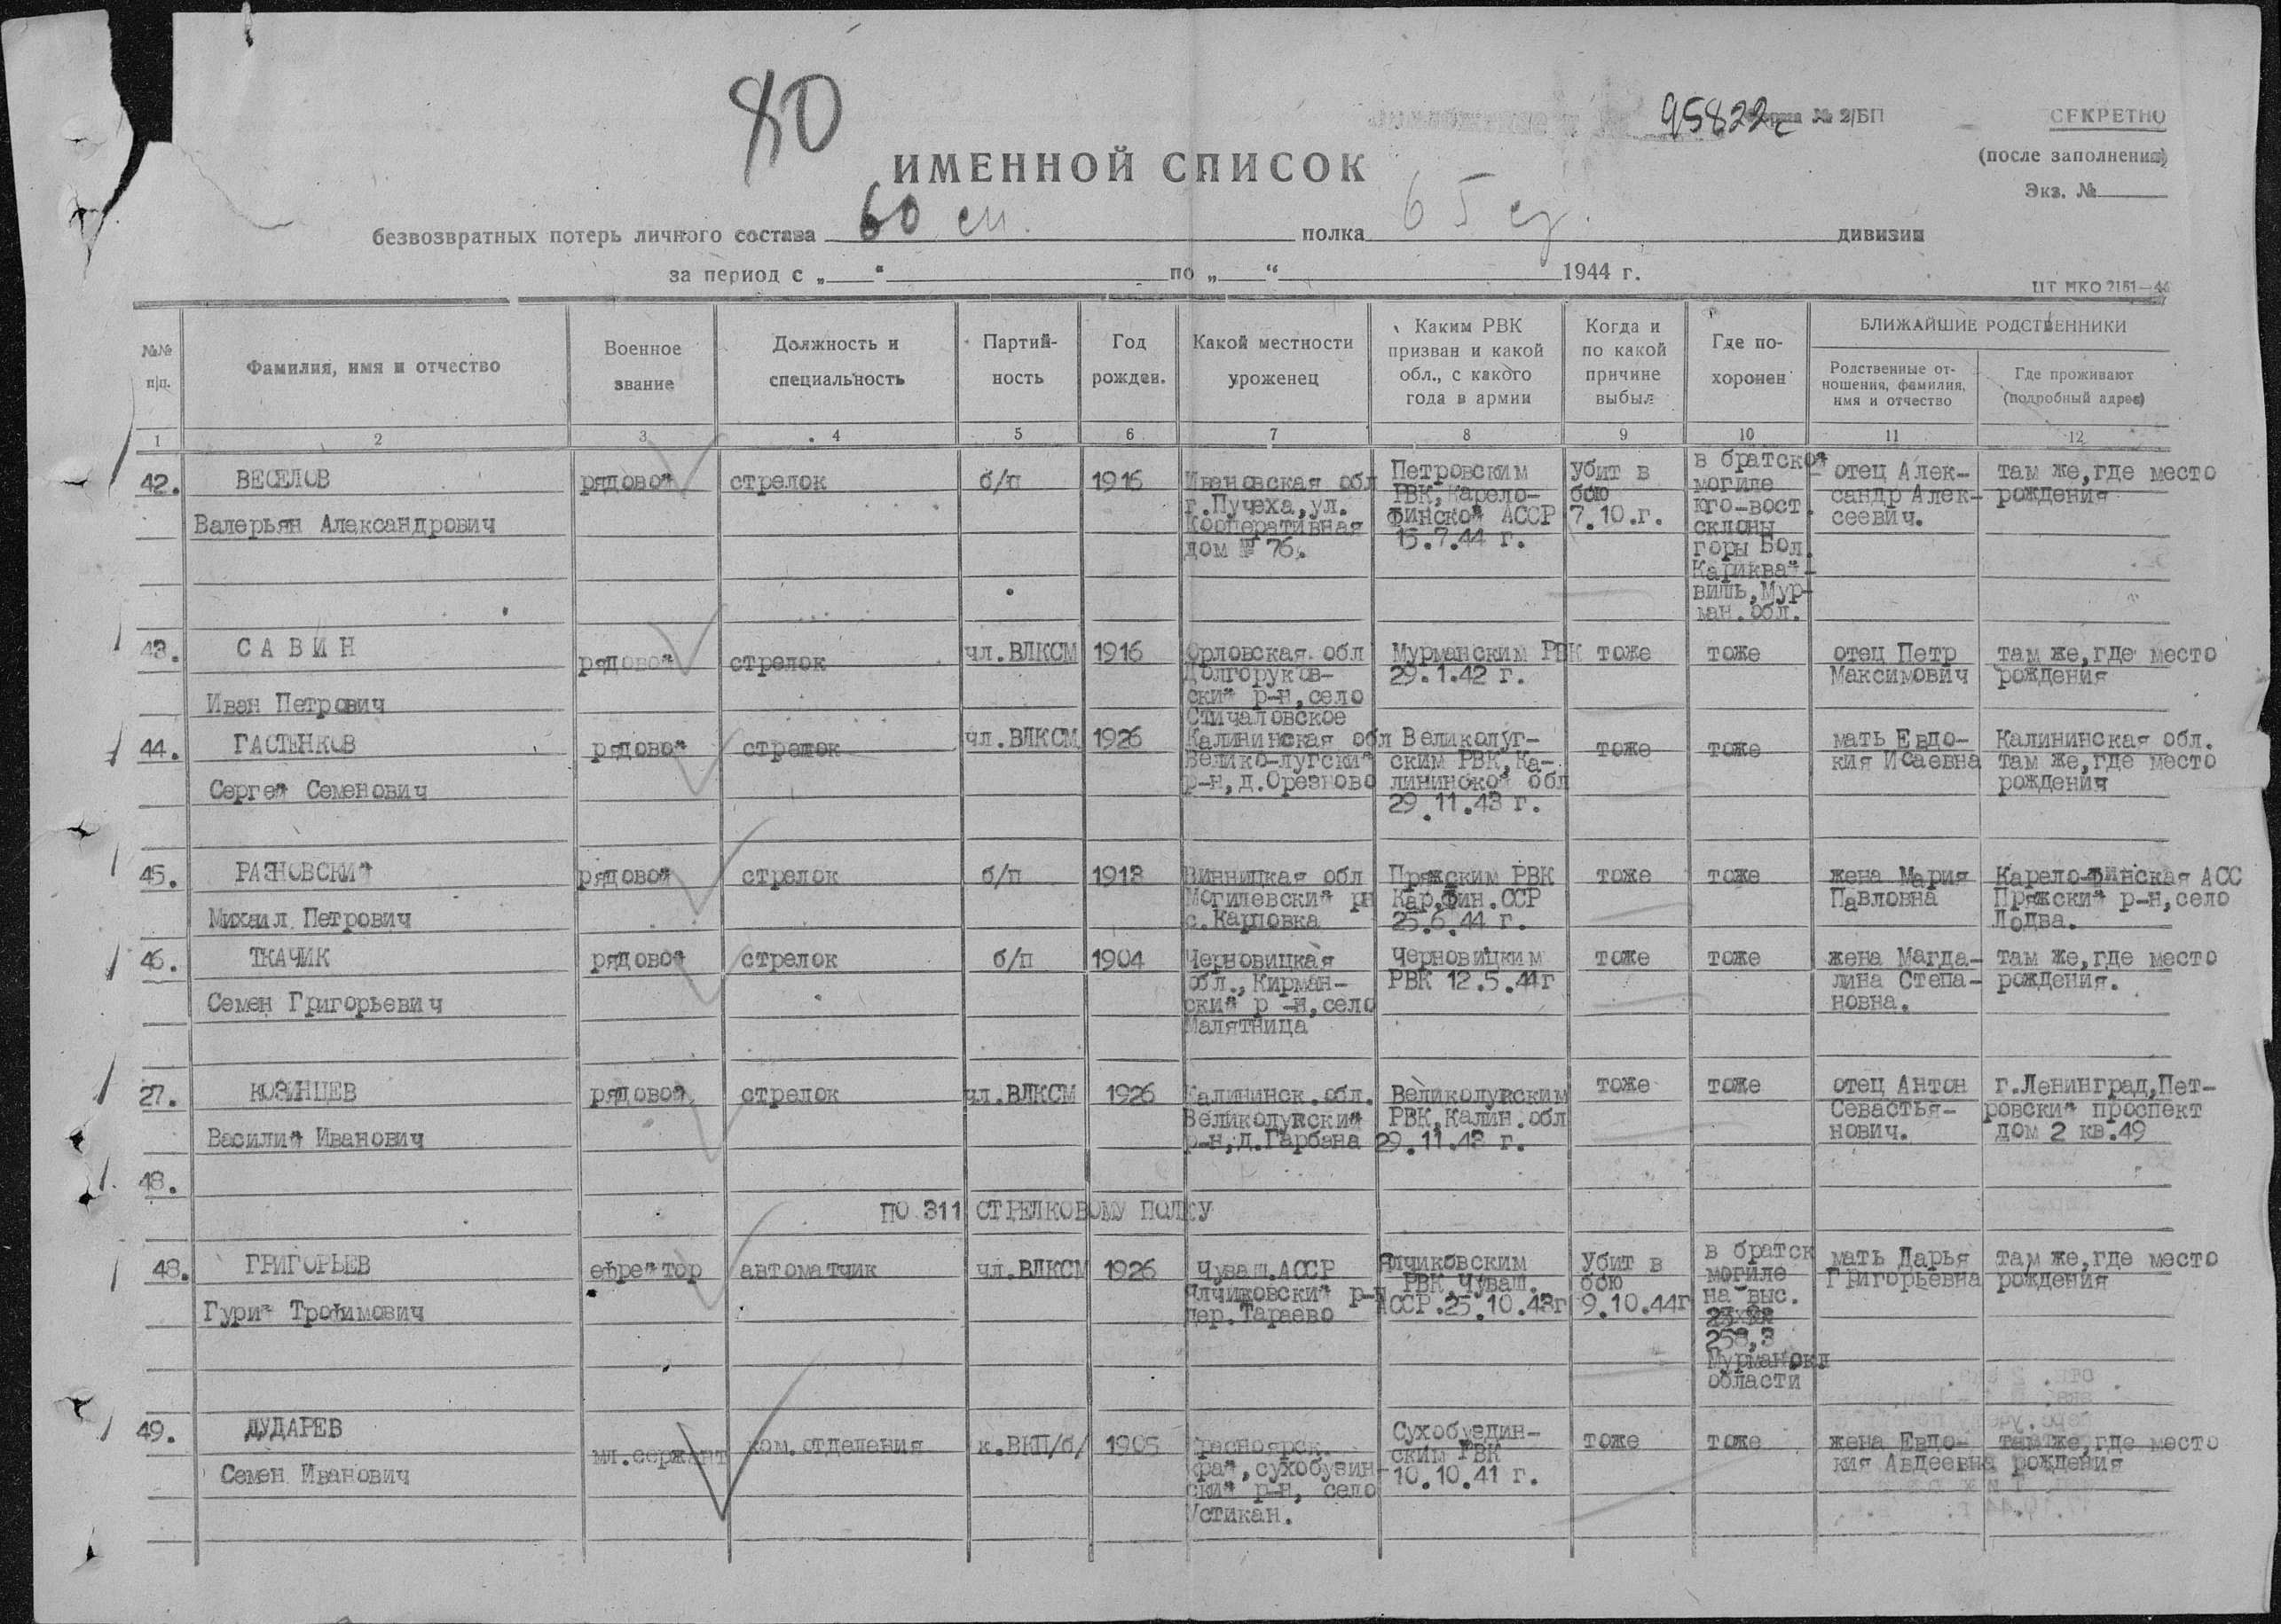 80
95822с
Форма № 2/БП
СЕКРЕТНО
(после заполнения)
Экз. №
ИМЕННОЙ СПИСОК
безвозвратных потерь личного состава 60 сп. полка 65 сд. дивизии
за период с „ “ по „ “ 1944 г.
ЦТ МКО 2161—44
№№ п|п.
Фамилия, имя и отчество
Военное звание
Должность и специальность
Партий-ность
Год рожден.
Какой местности уроженец
Каким РВК призван и какой обл., с какого года в армии
Когда и по какой причине выбыл
Где по-хоронен
БЛИЖАЙШИЕ РОДСТВЕННИКИ
Родственные от-ношения, фамилия, имя и отчество
Где проживают (подробный адрес)
1 2 3 4 5 6 7 8 9 10 11 12
42.
ВЕСЕЛОВ
Валерьян Александрович
рядовой
стрелок
б/п
1916
Ивановская обл
г.Пучеха,ул.
Кооперативная
дом № 76.
Петровским
РВК,Карело-
Финской АССР
15.7.44 г.
убит в
бою
7.10.г.
в братской
могиле
юго-вост.
склоны
горы Бол.
Кариквай-
вишь,Мур-
ман.обл.
отец Алек-
сандр Алек-
сеевич.
там же,где место
рождения
43.
САВИН
Иван Петрович
рядовой
стрелок
чл.ВЛКСМ
1916
Орловская обл
Долгоруков-
ский р-н,село
Стичаловское
Мурманским РВК
29.1.42 г.
тоже
тоже
отец Петр
Максимович
там же,где место
рождения
44.
ГАСТЕНКОВ
Сергей Семенович
рядовой
стрелок
чл.ВЛКСМ
1926
Калининская обл
Велико-лугский
р-н,д.Орезново
Великолуг-
ским РВК,Ка-
лининской обл
29.11.43 г.
тоже
тоже
мать Евдо-
кия Исаевна
Калининская обл.
там же,где место
рождения
45.
РАЗНОВСКИЙ
Михаил Петрович
рядовой
стрелок
б/п
1913
Винницкая обл
Могилевский рн
с.Карповка
Пряжским РВК
Кар,Фин.ССР
25.6.44 г.
тоже
тоже
жена Мария
Павловна
Карело-Финская АСС
Пряжский р-н,село
Лодва.
46.
ТКАЧИК
Семен Григорьевич
рядовой
стрелок
б/п
1904
Черновицкая
обл.,Кирман-
ский р-н,село
Малятница
Черновицким
РВК 12.5.44г
тоже
тоже
жена Магда-
лина Степа-
новна.
там же,где место
рождения.
27.
КОЗИНЦЕВ
Василий Иванович
рядовой
стрелок
чл.ВЛКСМ
1926
Калининск.обл.
Великолукский
р-н,д.Гарбана
Великолукским
РВК,Калин.обл
29.11.43 г.
тоже
тоже
отец Антон
Севастья-
нович.
г.Ленинград,Пет-
ровский проспект
дом 2 кв.49
48.
ПО 311 СТРЕЛКОВОМУ ПОЛКУ
48.
ГРИГОРЬЕВ
Гурий Трофимович
ефрейтор
автоматчик
чл.ВЛКСМ
1926
Чуваш.АССР
Ялчиковский р-н
дер.Тараево
Ялчиковским
РВК,Чуваш.
АССР.25.10.43г
Убит в
бою
9.10.44г
в братск
могиле
на выс.
258,3
Мурманскл
области
мать Дарья
Григорьевна
там же,где место
рождения
49.
ДУДАРЕВ
Семен Иванович
мл.сержант
ком.отделения
к.ВКП/б/
1905
Красноярск.
край,сухобузин-
ский р-н, село
Устикан.
Сухобузин-
ским РВК
10.10.41 г.
тоже
тоже
жена Евдо-
кия Авдеевна
там же,где место
рождения